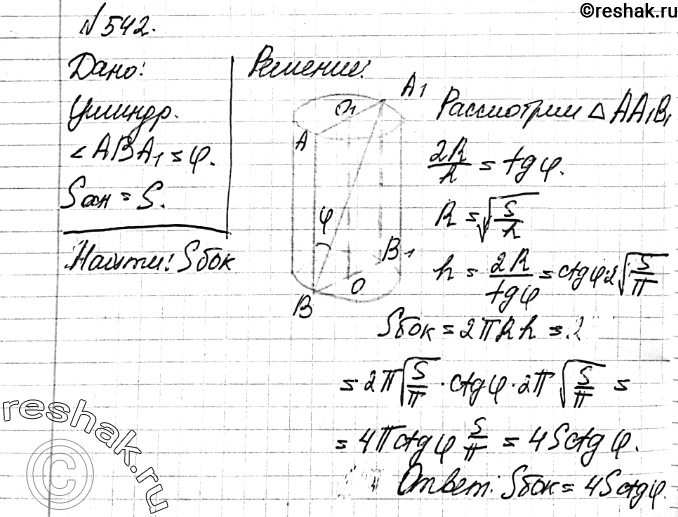 ©reshak.ru
№542.
Дано:
Цилиндр.
∠ABA₁=φ.
Sосн=S.
Найти: Sбок
Решение:
A1
O1
A
φ
B1
O
B
Рассмотрим △AA₁B₁
2R/h = tgφ.
R = √(S/h)
h = 2R/tgφ = ctgφ2√(S/π)
Sбок = 2πRh = 2
= 2π√(S/π) · ctgφ · 2π √(S/π) =
= 4πctgφ S/π = 4Sctgφ.
Ответ: Sбок = 4Sctgφ
reshak.ru
©